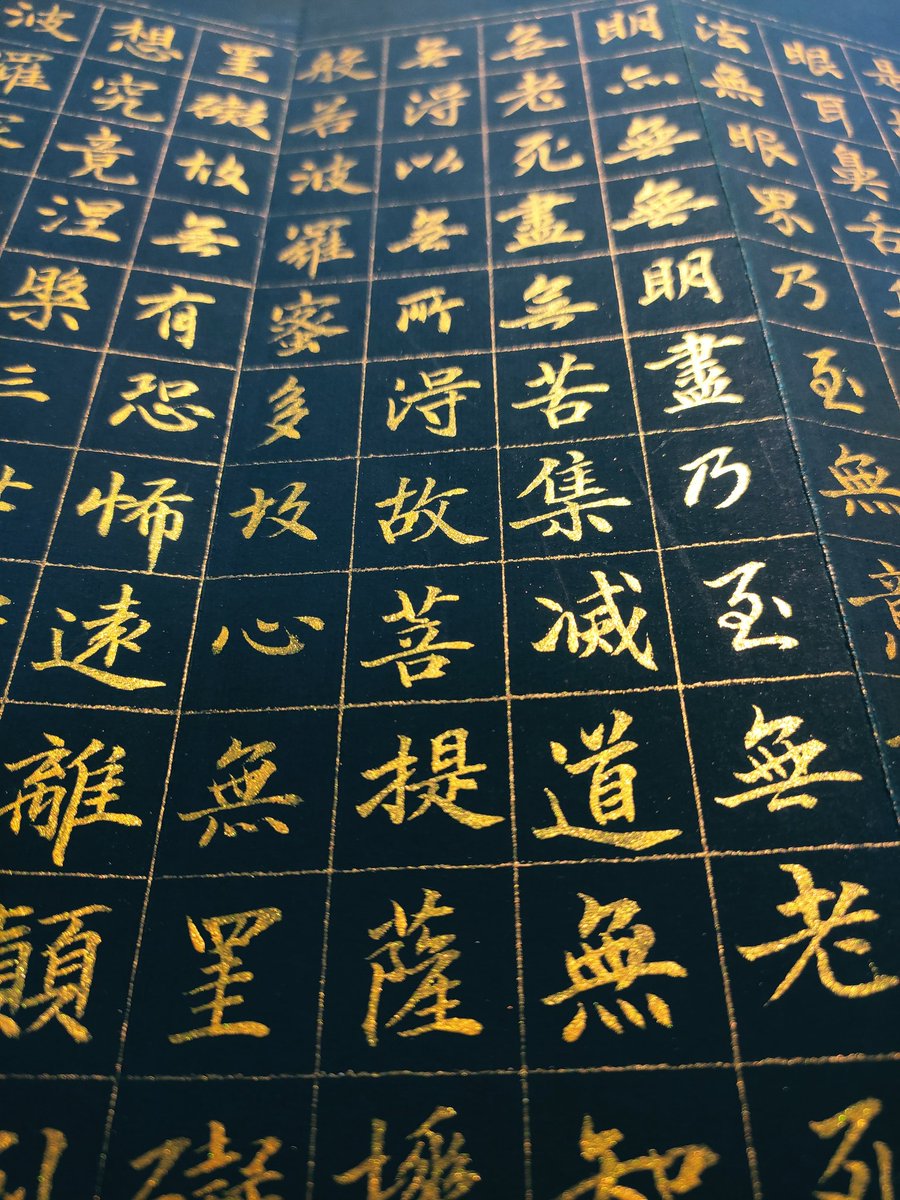 是
眼耳鼻舌
法無眼界乃至無意
明亦無無明盡乃至無老死
無老死盡無苦集滅道無
無得以無所得故菩提薩埵
般若波羅蜜多故心無罣礙
罣礙故無有恐怖遠離顛倒
想究竟涅槃三世
波羅